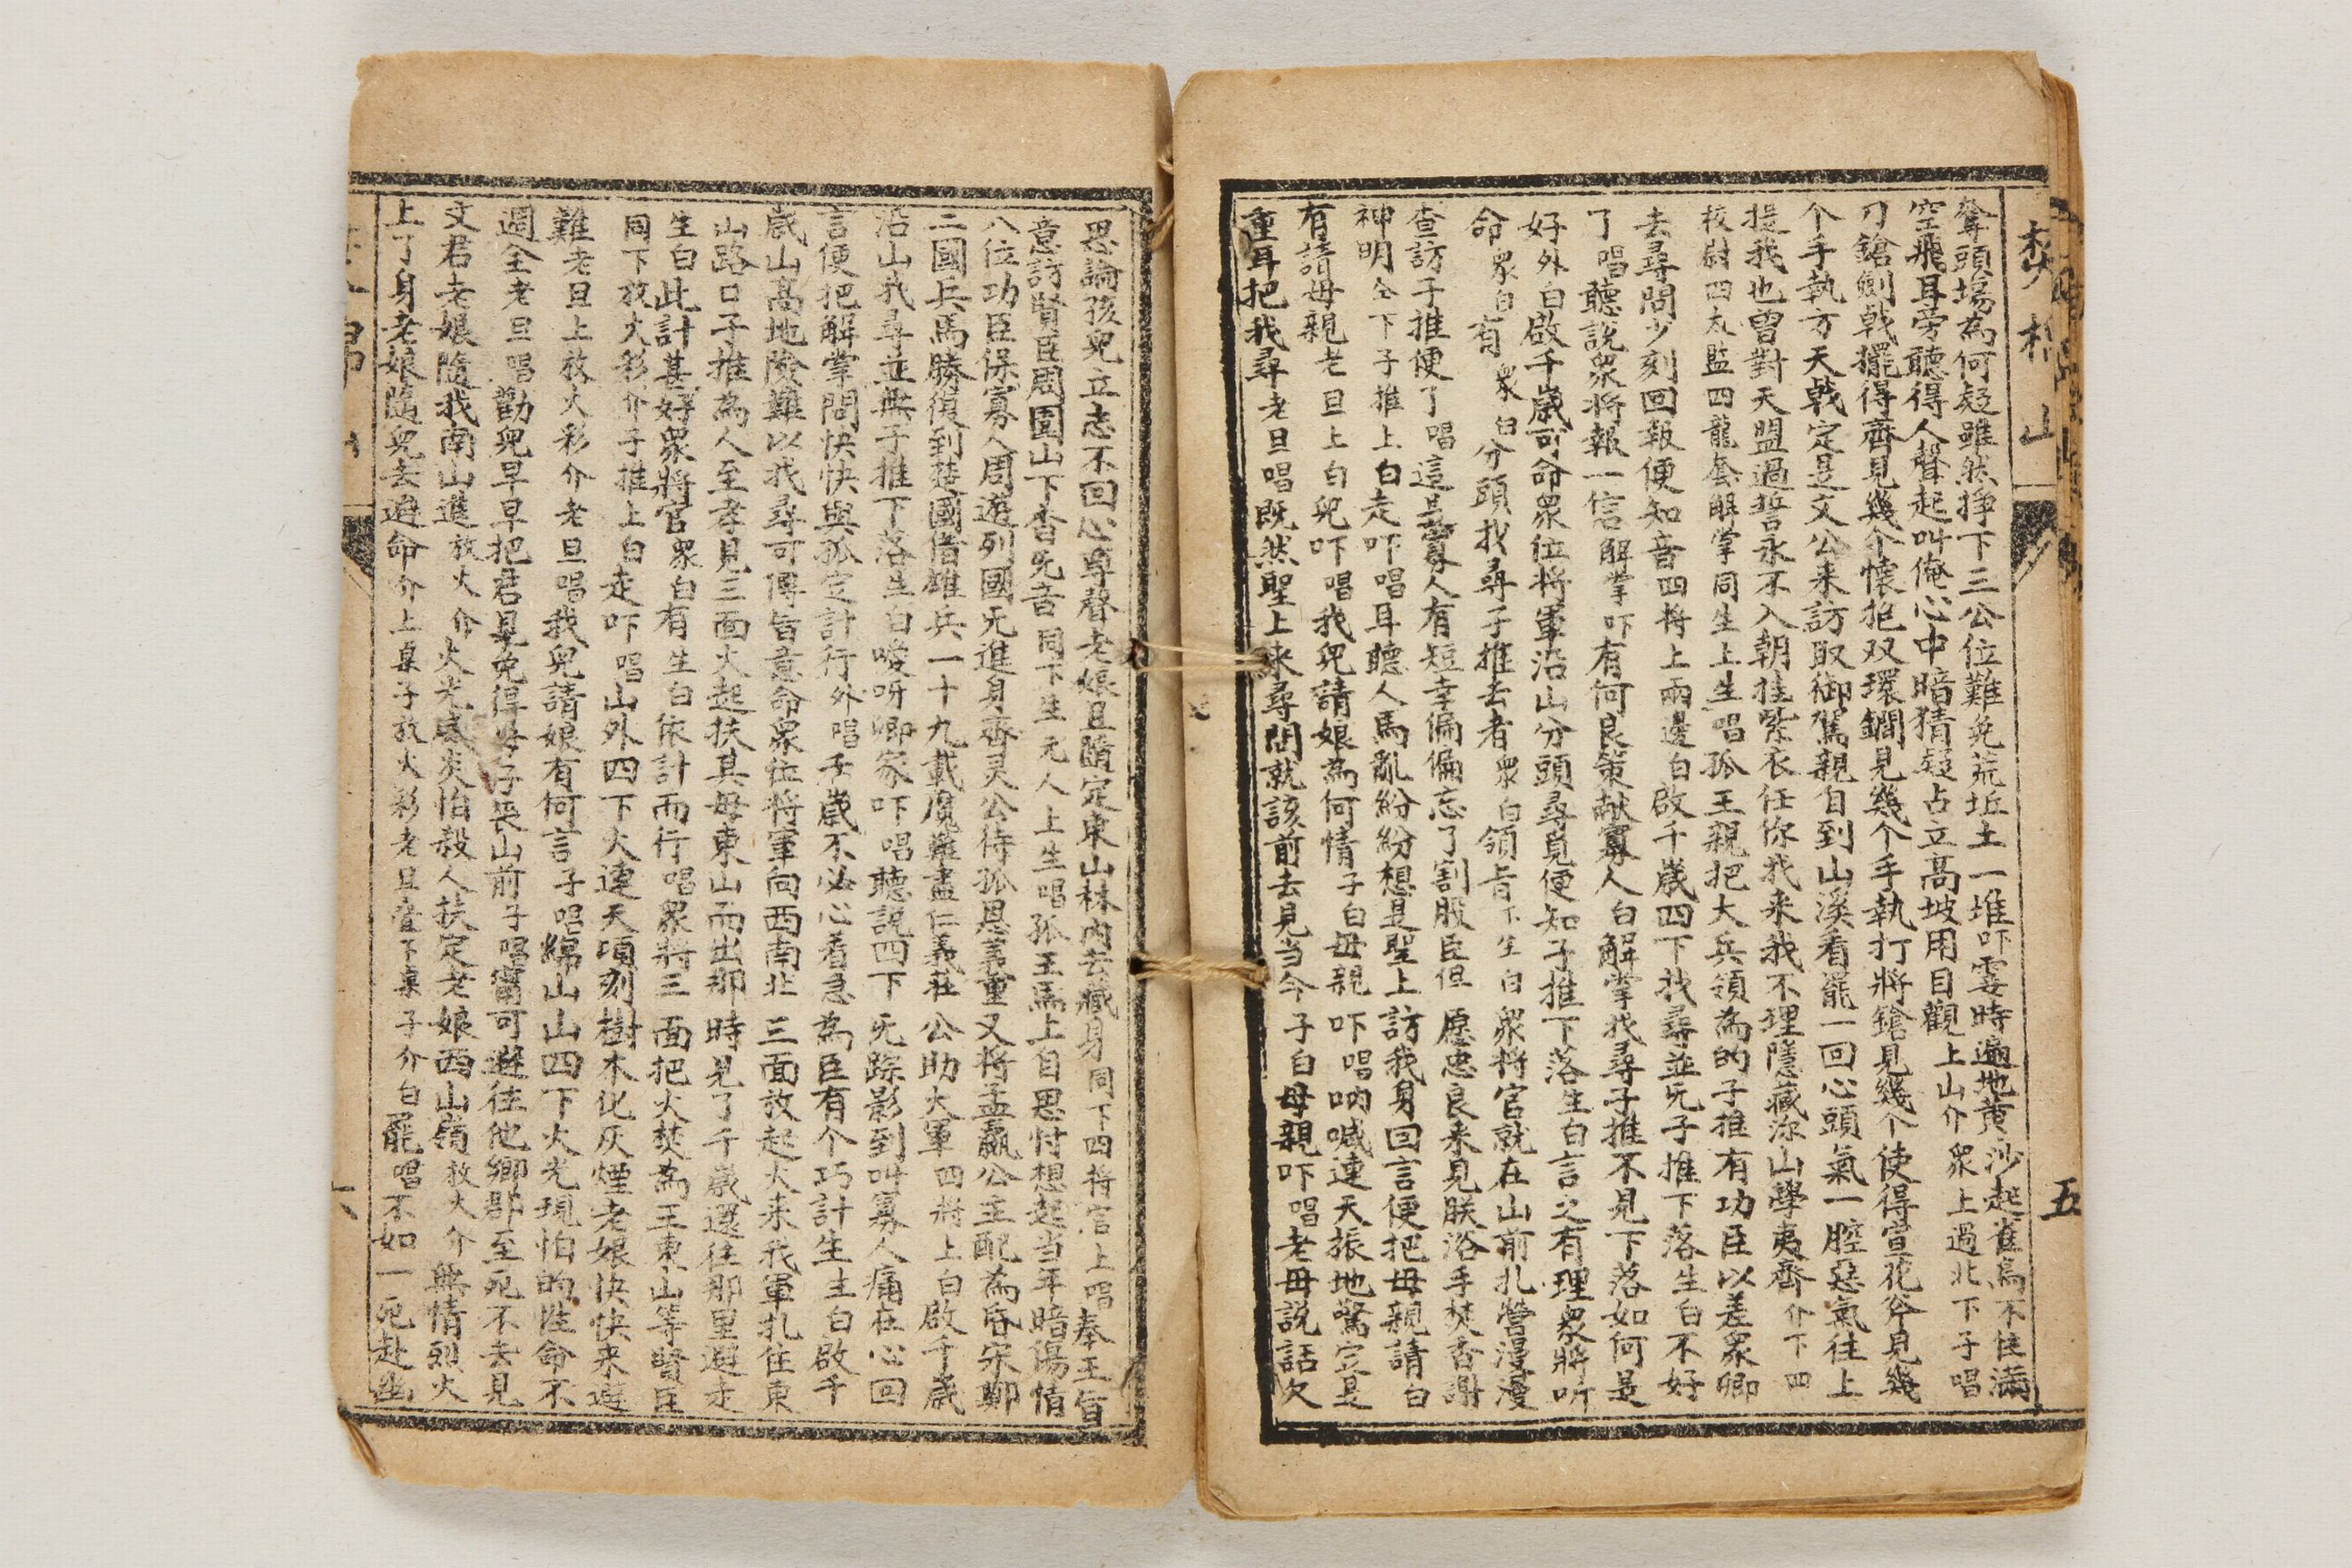 奪頭場為何疑雖然掙下三公位難免荒坵土一堆吓霎時遍地黃沙起雀鳥不住滿
空飛耳旁聽得人聲起叫俺心中暗猜疑占立高坡用目觀上山介衆上過北下子唱
刀鎗劍戟擺得齊見幾个懷抱双環鐗見幾个手執打將鎗見幾个使得宣花斧見幾
个手執方天戟定是文公来訪取御駕親自到山溪看罷一回心頭氣一腔惡氣往上
提我也曾對天盟過誓永不入朝挂紫衣任你找来我不理隱藏深山學夷齊介下四
校尉四太監四龍套解掌同生上生唱孤王親把大兵領為的子推有功臣以差衆卿
去尋問少刻回報便知音四将上兩邊白啟千歲四下找尋並旡子推下落生白不好
了唱聽說衆将報一信解掌吓有何良策献寡人白解掌找尋子推不見下落如何是
好外白啟千歲可命衆位将軍沿山分頭尋覓便知子推下落生白言之有理衆將听
命衆白有衆白分頭找尋子推去者衆白領旨下生白衆將官就在山前扎營漫漫
查訪子推便了唱這是寡人有短幸偏偏忘了割股臣但愿忠良来見朕浴手焚香謝
神明仝下子推上白走吓唱耳聽人馬亂紛紛想是聖上訪我身回言便把母親請白
有請母親老旦上白兒吓唱我兒請娘為何情子白母親吓唱吶喊連天振地驚定是
重耳把我尋老旦唱既然聖上来尋問就該前去見当今子白母親吓唱老母說話欠
焚棉山
五
思論孩兒立志不回心尊聲老娘且隨定東山林內去藏身同下四将官上唱奉王旨
意訪賢臣周圍山下杳旡音同下生元人上生唱孤王馬上自思忖想起当年暗傷情
八位功臣保寡人周遊列國旡進身齊灵公待孤恩義重又将孟嬴公主配為昏宋鄭
二國兵馬勝復到楚國借雄兵一十九載魔難盡仁義莊公助大軍四將上白啟千歲
沿山找尋並無子推下落生白噯呀卿家吓唱聽說四下旡踪影到叫寡人痛在心回
言便把解掌問快快與孤定計行外唱千歲不必心着急為臣有个巧計生生白啟千
歲山高地險難以找尋可傳旨意命衆位将軍向西南北三面放起火来我軍扎住東
山路口子推為人至孝見三面火起扶其母東山而出那時見了千歲還往那里避走
生白此計甚好衆將官衆白有生白依計而行唱衆將三面把火焚為王東山等賢臣
同下放火彩介子推上白走吓唱山外四下火連天頃刻樹木化灰煙老娘快快来避
難老旦上放火彩介老旦唱我兒請娘有何言子唱綿山山四下火光現怕的性命不
週全老旦唱勸兒早早把君見免得母子喪山前子唱寧可避往他鄉郡至死不去見
文君老娘隨我南山進放火介火光威炎怕殺人扶定老娘西山嶺放火介無情烈火
上了身老娘隨兒去避命介上桌子放火彩老旦登下桌子介白罷唱不如一死赴幽
六